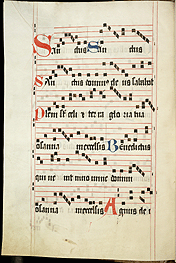 San ctus San ctus
San ctus domin de us sabaoth
Pleni st celi & terra gloria tua
osanna inexcelsis Benedictus
qui ue nit innomine domini
osanna inexcelsis Agnus de i